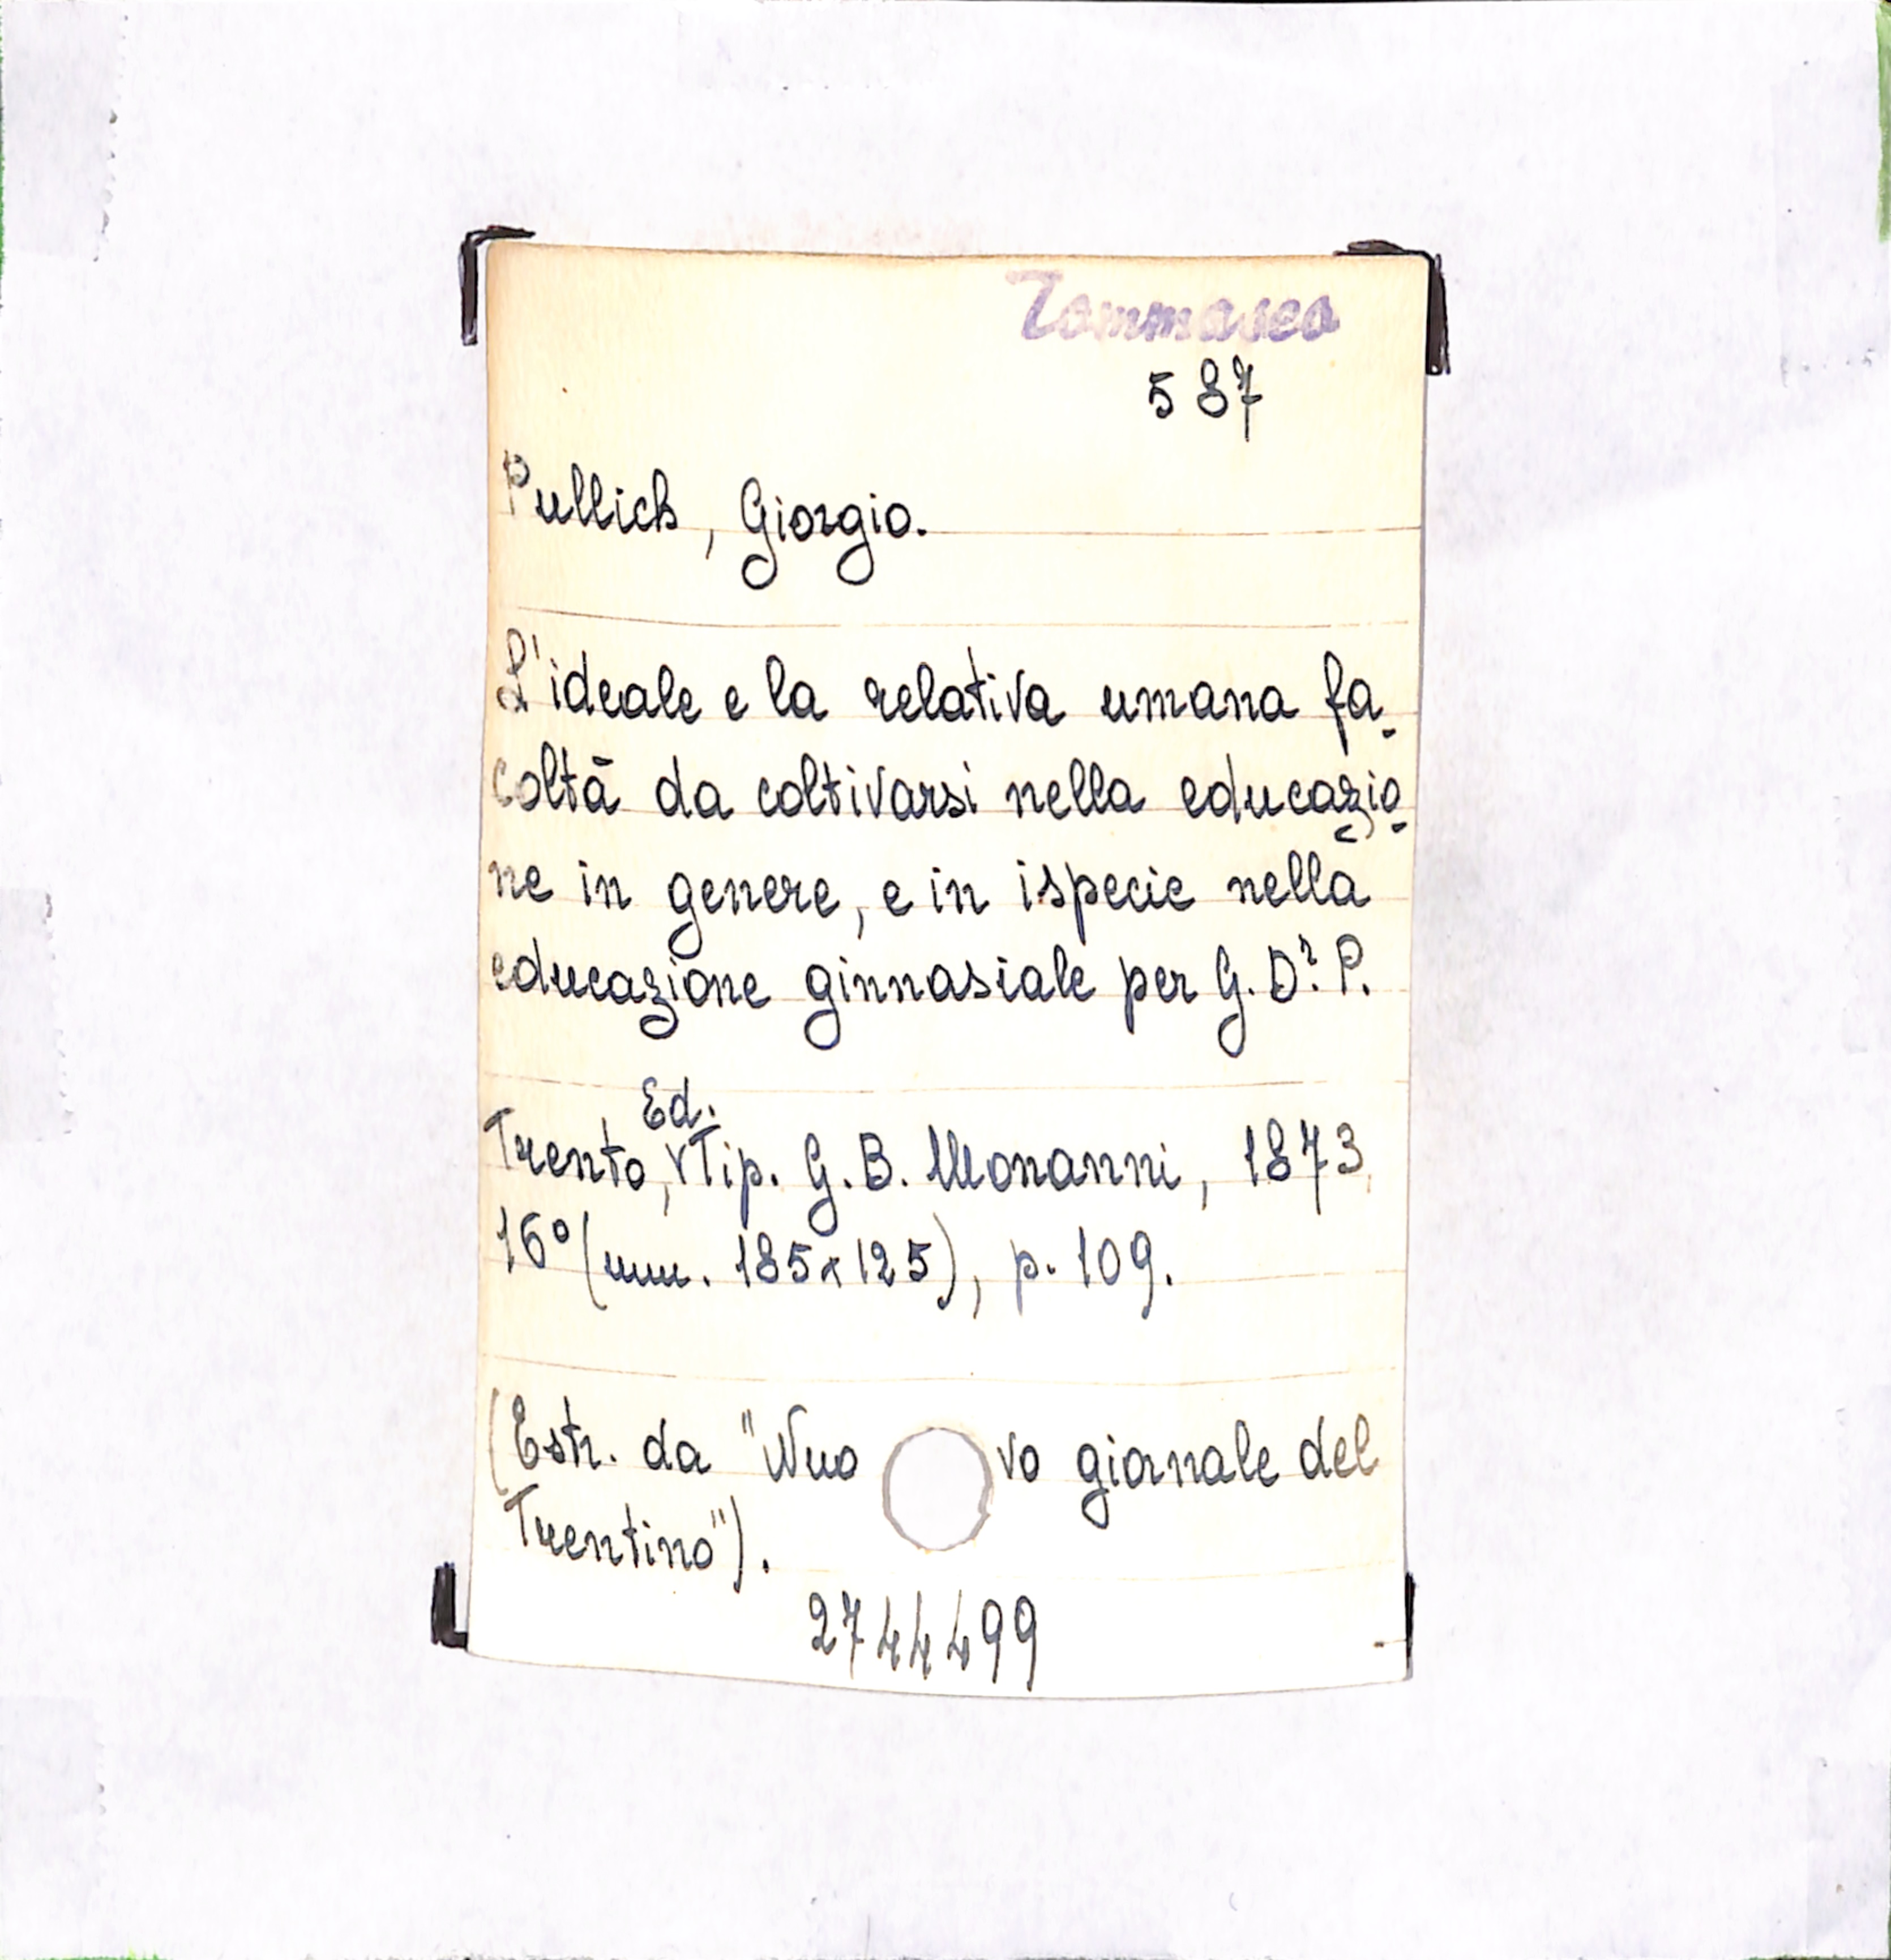 Tommaseo
587
Pullich, Giorgio.
L'ideale e la relativa umana fa-
coltà da coltivarsi nella educazio-
ne in genere, e in ispecie nella
educazione ginnasiale per G. Dr. P.
Ed.
Trento, Tip. G. B. Monanni, 1873
16° (mm. 185x125), p. 109.
(Estr. da "Nuovo giornale del
Trentino").
2744499